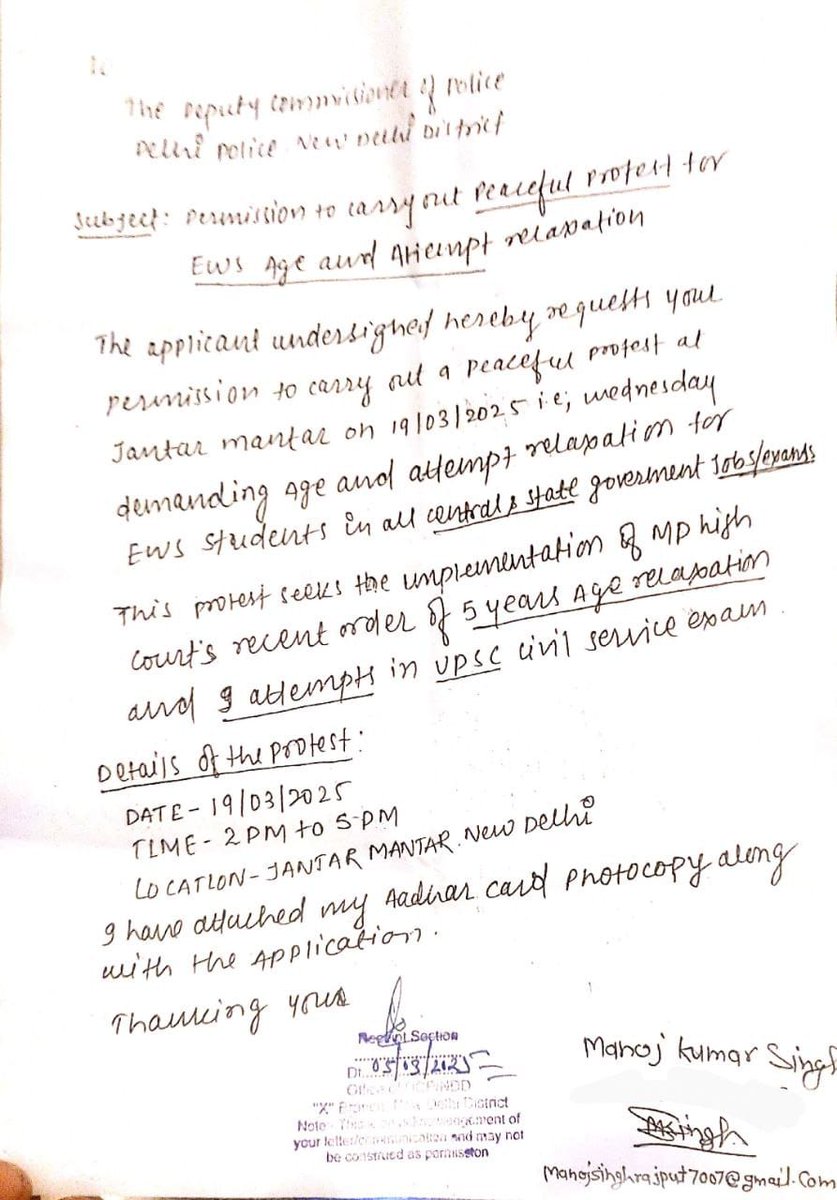 To
The Deputy Commisioner of Police
Delhi Police New Delhi District
Subject: Permission to carry out Peaceful Protest for
EWS Age and Attempt relaxation
The applicant undersigned hereby requests your
permission to carry out a peaceful protest at
Jantar mantar on 19/03/2025 i.e; wednesday
demanding Age and attempt relaxation for
EWS students in all central & state goverment Jobs/exams
This protest seeks the implementation of MP high
court's recent order of 5 years Age relaxation
and 9 attempts in UPSC civil service exam.
Details of the Protest:
DATE - 19/03/2025
TIME - 2 PM to 5 PM
LOCATION - JANTAR MANTAR. New Delhi
I have attached my Aadhar card photocopy along
with the Application.
Thanking you
Receipt Section
Dt. 05/03/2025
Office of
"X" New Delhi District
Note:- This is
your letter/communication and may not
be construed as permission
Manoj Kumar Singh
MKSingh
manojsinghrajput7007@gmail.com